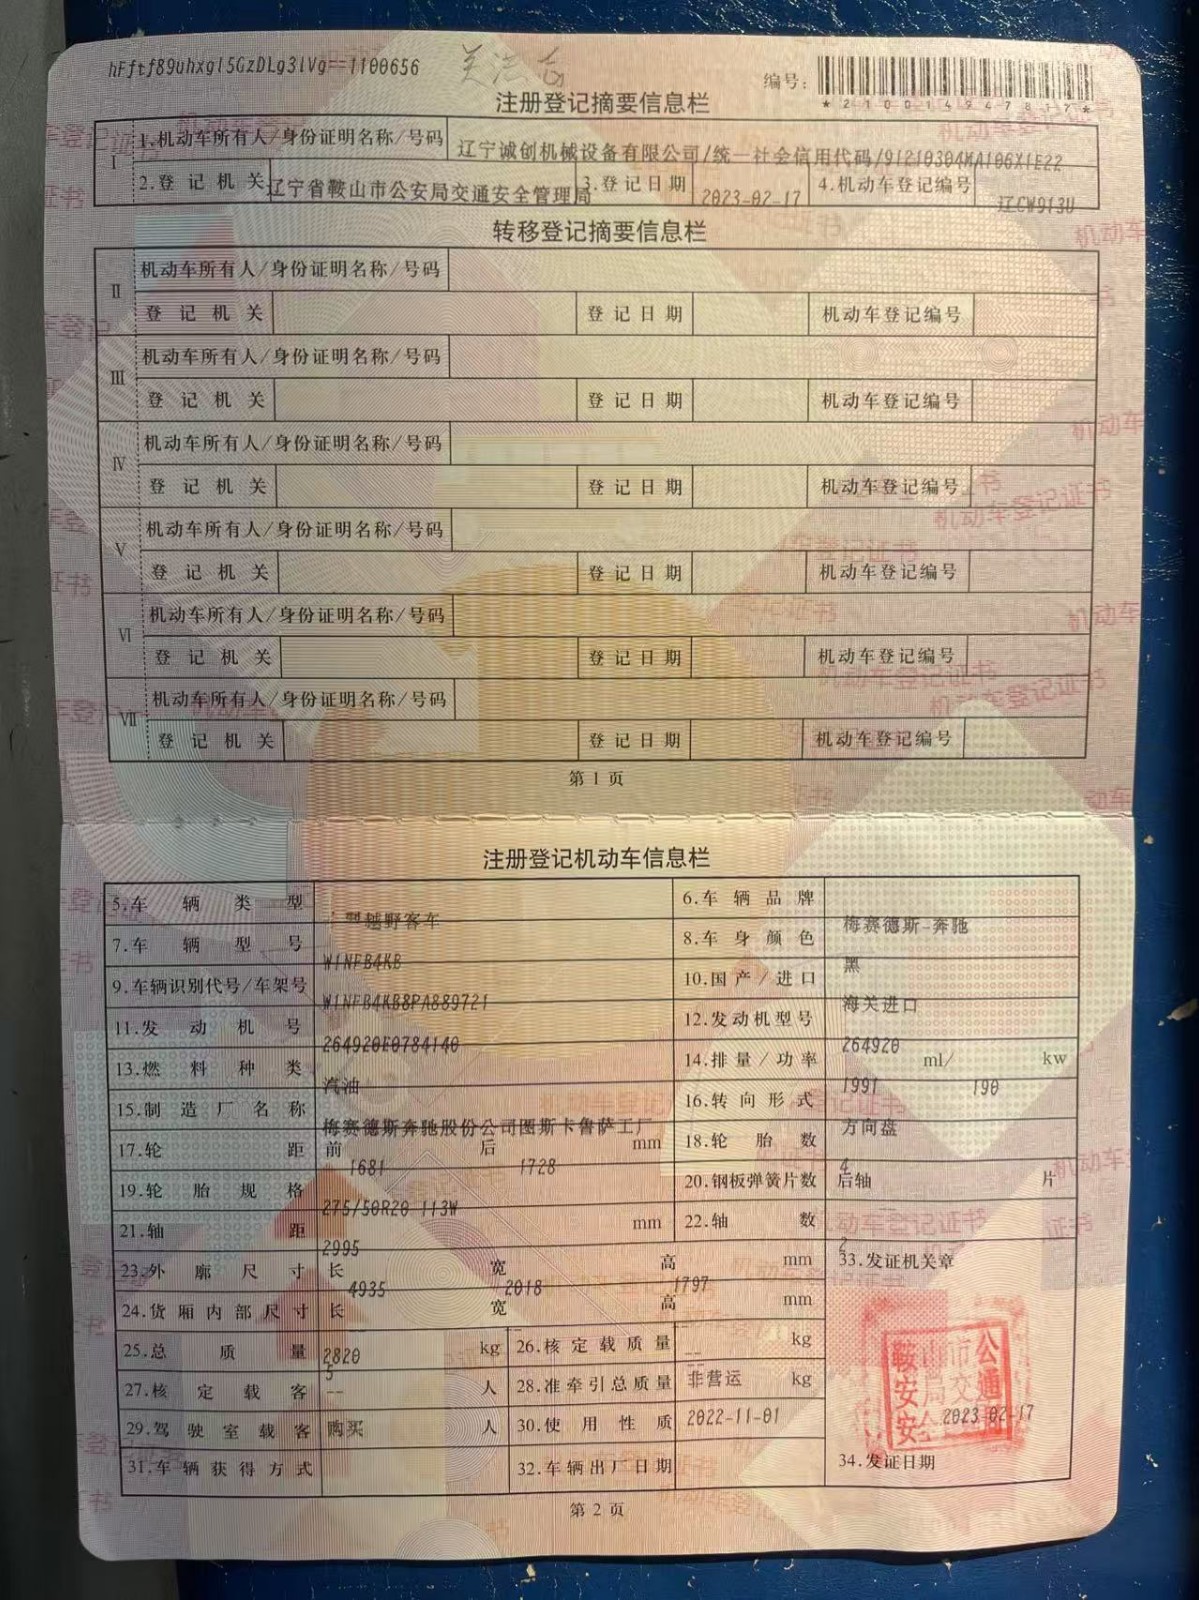 hFftf89uhxgl5GzDLg3lVg==1100656
编号:
*210014947817*
注册登记摘要信息栏
I
1.机动车所有人/身份证明名称/号码 辽宁诚创机械设备有限公司/统一社会信用代码/91210304MA106X1E22
2.登记机关 辽宁省鞍山市公安局交通安全管理局 3.登记日期 2023-02-17 4.机动车登记编号 辽CW913U
转移登记摘要信息栏
II
机动车所有人/身份证明名称/号码
登记机关 登记日期 机动车登记编号
III
机动车所有人/身份证明名称/号码
登记机关 登记日期 机动车登记编号
IV
机动车所有人/身份证明名称/号码
登记机关 登记日期 机动车登记编号
V
机动车所有人/身份证明名称/号码
登记机关 登记日期 机动车登记编号
VI
机动车所有人/身份证明名称/号码
登记机关 登记日期 机动车登记编号
VII
机动车所有人/身份证明名称/号码
登记机关 登记日期 机动车登记编号
第 1 页
注册登记机动车信息栏
5.车辆类型 型越野客车 6.车辆品牌 梅赛德斯-奔驰
7.车辆型号 W1NFB4KB 8.车身颜色 黑
9.车辆识别代号/车架号 W1NFB4KB8PA889721 10.国产/进口 海关进口
11.发动机号 264920E0784140 12.发动机型号 264920
13.燃料种类 汽油 14.排量/功率 1991 ml/ 190 kw
15.制造厂名称 梅赛德斯奔驰股份公司图斯卡鲁萨工厂 16.转向形式 方向盘
17.轮距 前 1681 后 1728 mm 18.轮胎数 4
19.轮胎规格 275/50R20 113W 20.钢板弹簧片数 后轴 片
21.轴距 2995 mm 22.轴数 2
23.外廓尺寸 长 4935 宽 2018 高 1797 mm 33.发证机关章
24.货厢内部尺寸 长 宽 高 mm
25.总质量 2820 kg 26.核定载质量 -- kg
27.核定载客 5 人 28.准牵引总质量 -- kg
29.驾驶室载客 -- 人 30.使用性质 非营运
31.车辆获得方式 购买 32.车辆出厂日期 2022-11-01
2023-02-17
34.发证日期
第 2 页